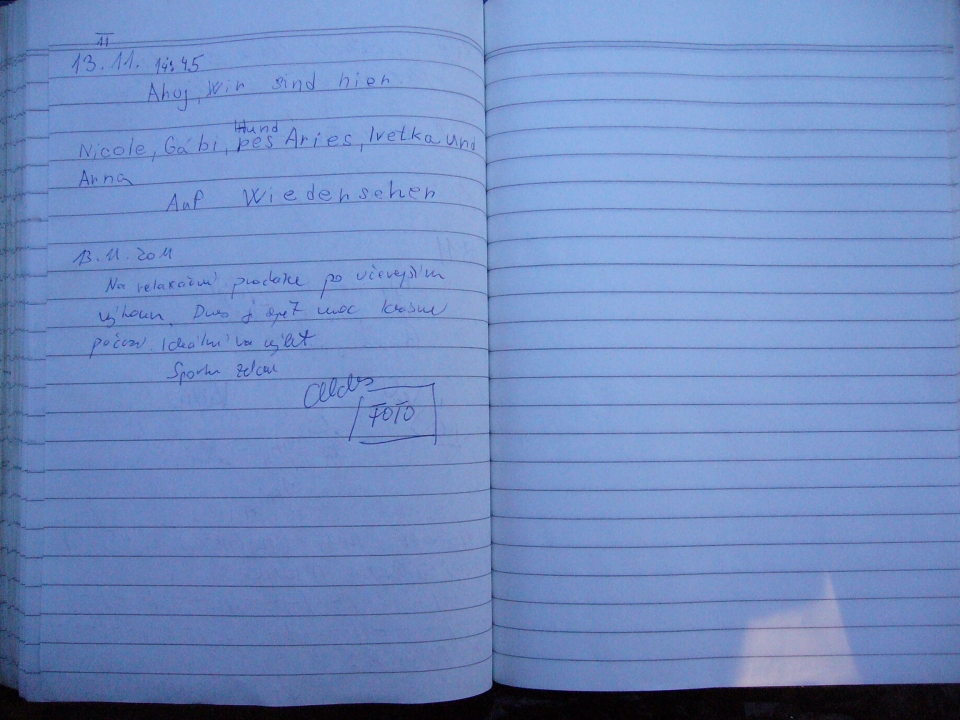 11
13.11. 14:45
Ahoj, Wir sind hier
Nicole, Gábi, Hund pes Aries, Ivetka und
Anna
Auf Wiedersehen
13.11.2011
Na relaxační procházce po včerejším
výkonu. Dnes je opět moc krásné
počasí. Ideální na výlet
Sportu zdar
FOTO